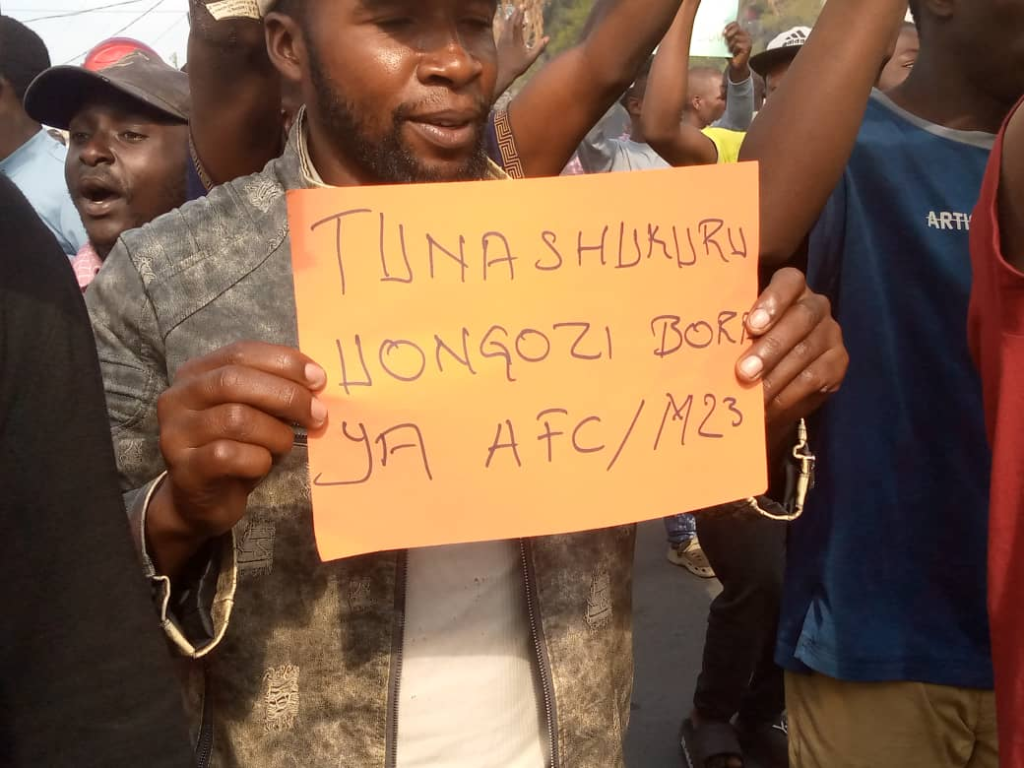 TUNASHUKURU
UONGOZI BORA
YA AFC/M23
ARTI